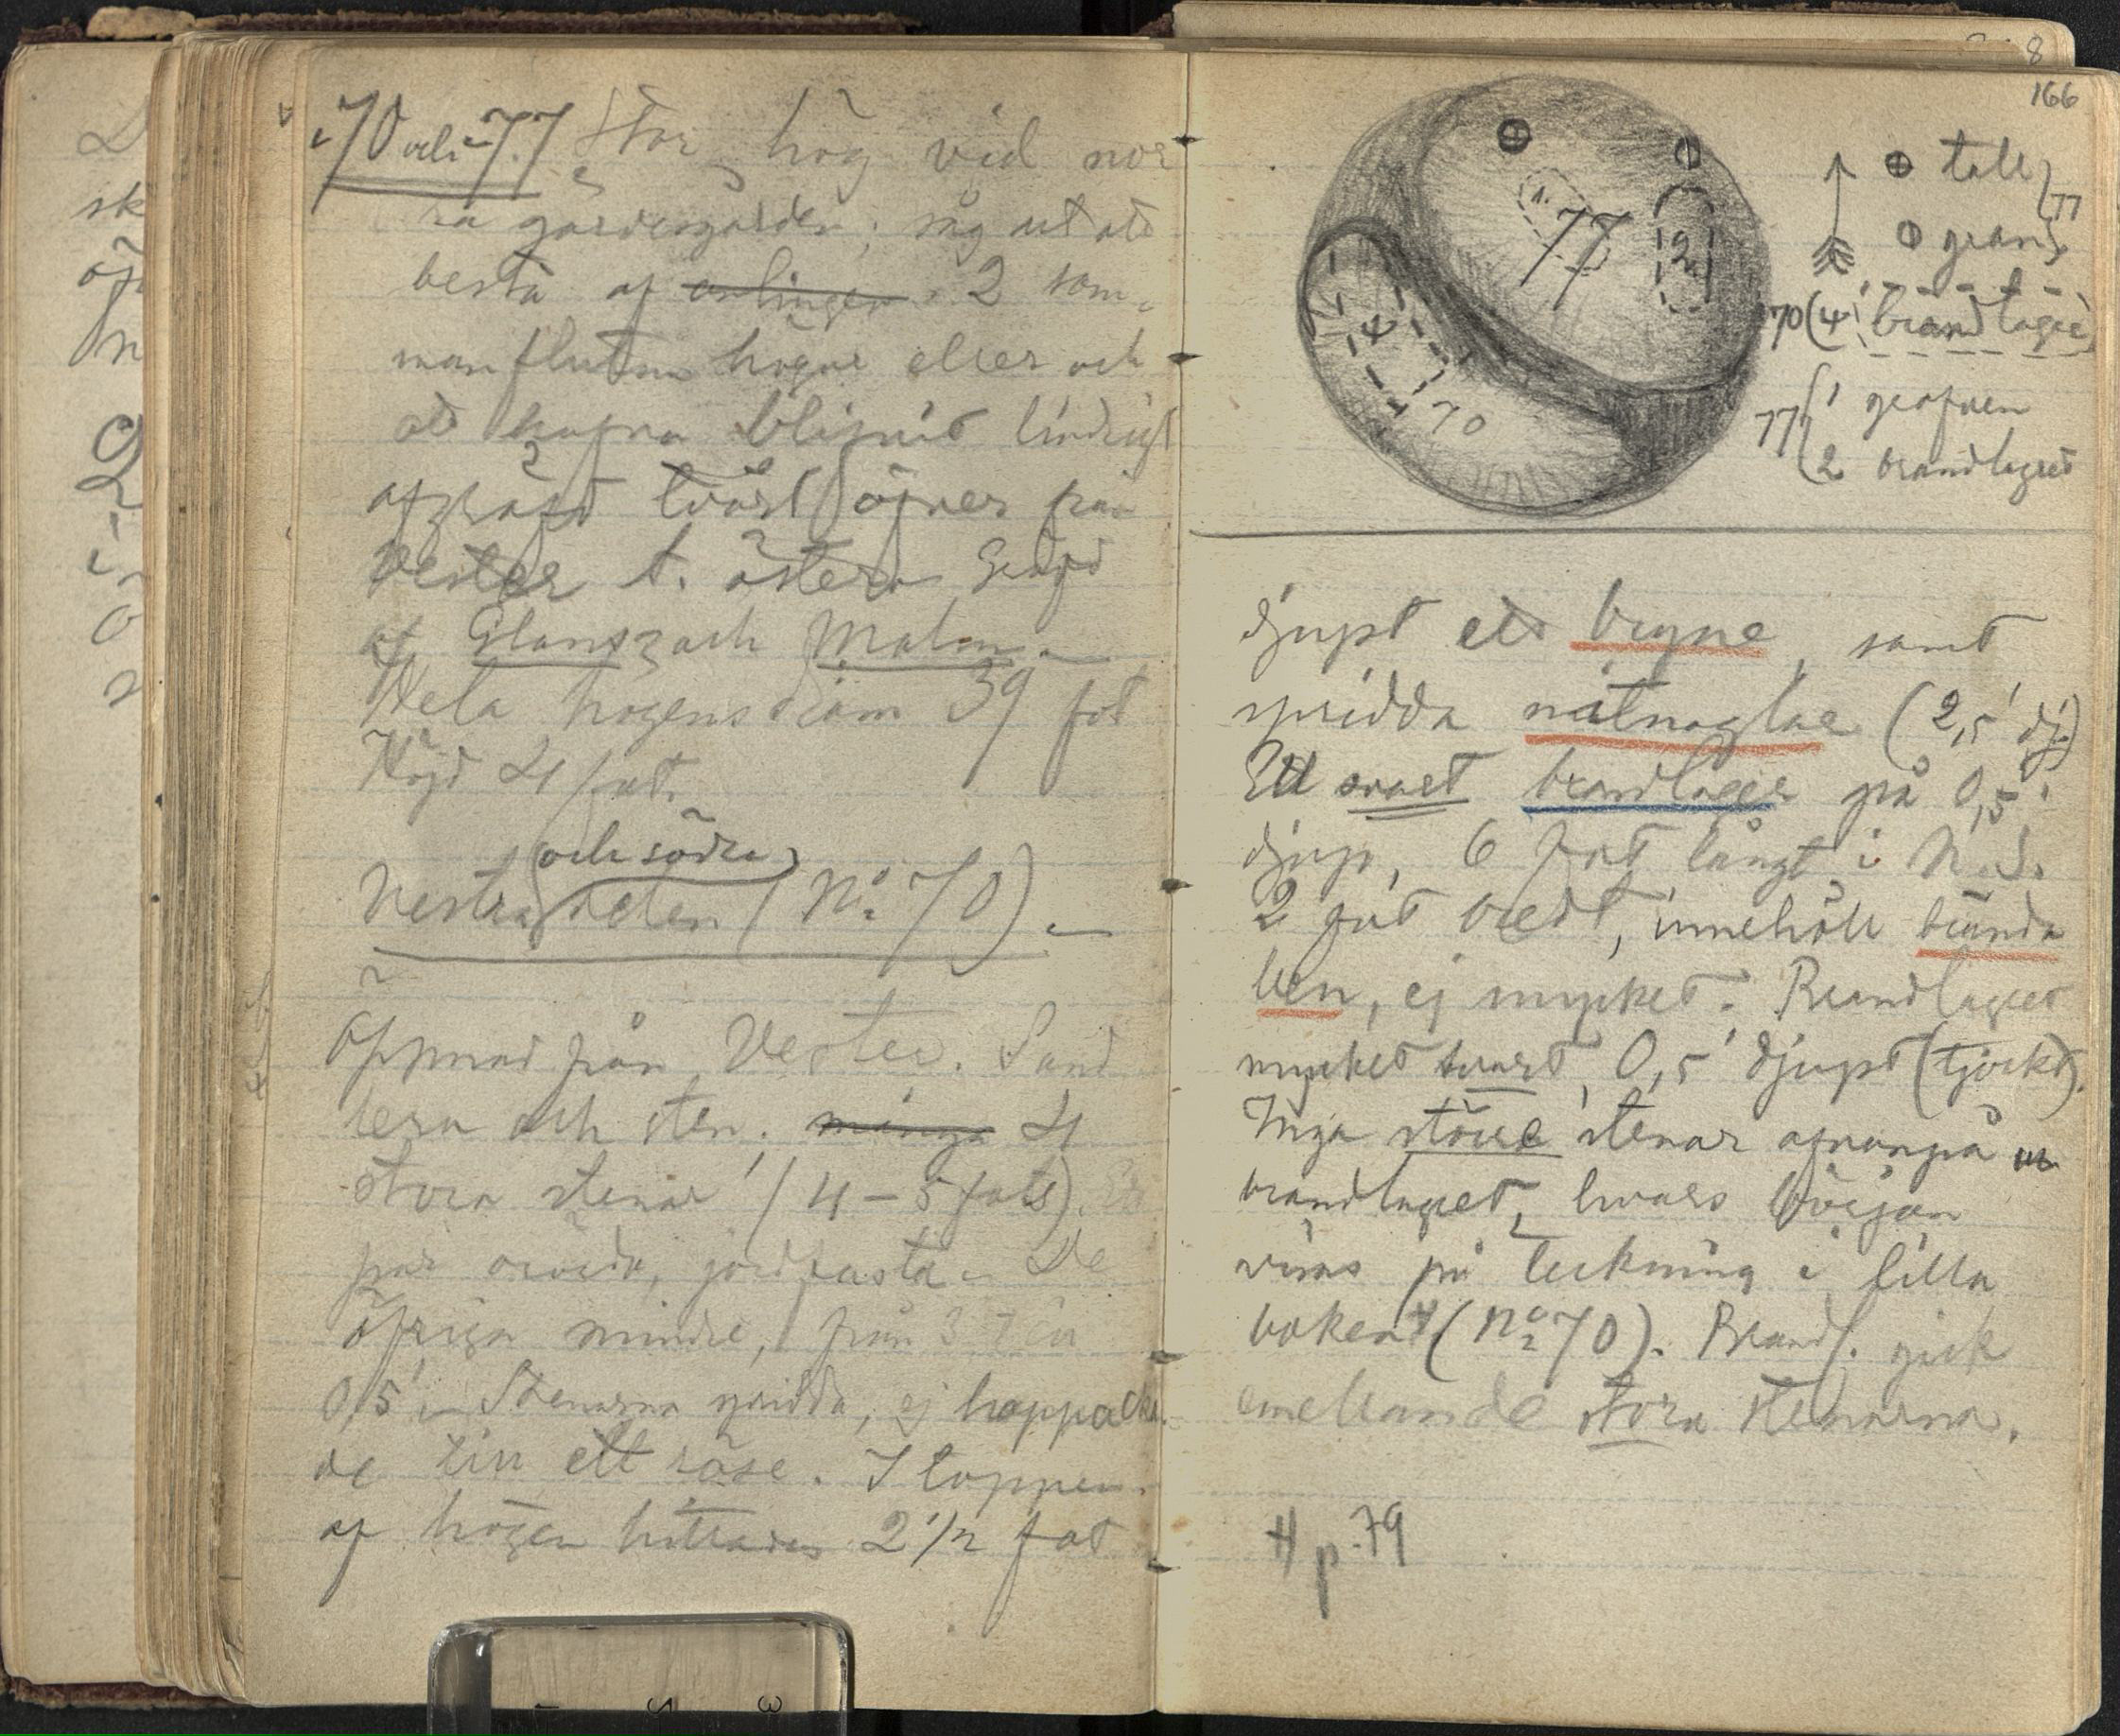 70 och 77 Stor hög vid nor
ra gärdesgården; såg ut att
bestå af antingen 2 som
manflutna högar eller och
att hafva blifvit lindrigt
afgräfd tvärt öfver från
Vester t. öster. Gräfd
af Glans och Malm.
Hela högens diam 39 fot
Höjd 4 fot.
och södra
Vestra delen (No 70)
Öppnad från Vester. Sand
lera och sten. många 4
stora stenar (4–5 fots). Ett
par jordfasta. De
öfriga mindre, från 3 till
0,5'. Stenarna spridda, ej hoppacka
de till ett röse. I toppen
af högen hittades 2 1/2 fot
166
77
1
2
4
70
tall
gran
77
70 (4 brandlager
77 1 grafven
2 brandlagret
djupt ett bryne, samt
spridda nåtnaglar (2,5' dj.)
Ett svart brandlager på 0,5'
djup, 6 fot långt i N.S.
2 fot bredt, innehöll brända
ben, ej mycket. Brandlagret
mycket svart, 0,5' djupt (tjockt).
Inga större stenar ofvanpå
brandlagret, hvars början
visas på teckning i lilla
boken # (No 70). Brandl. gick
emellan de stora stenarna.
# p. 79